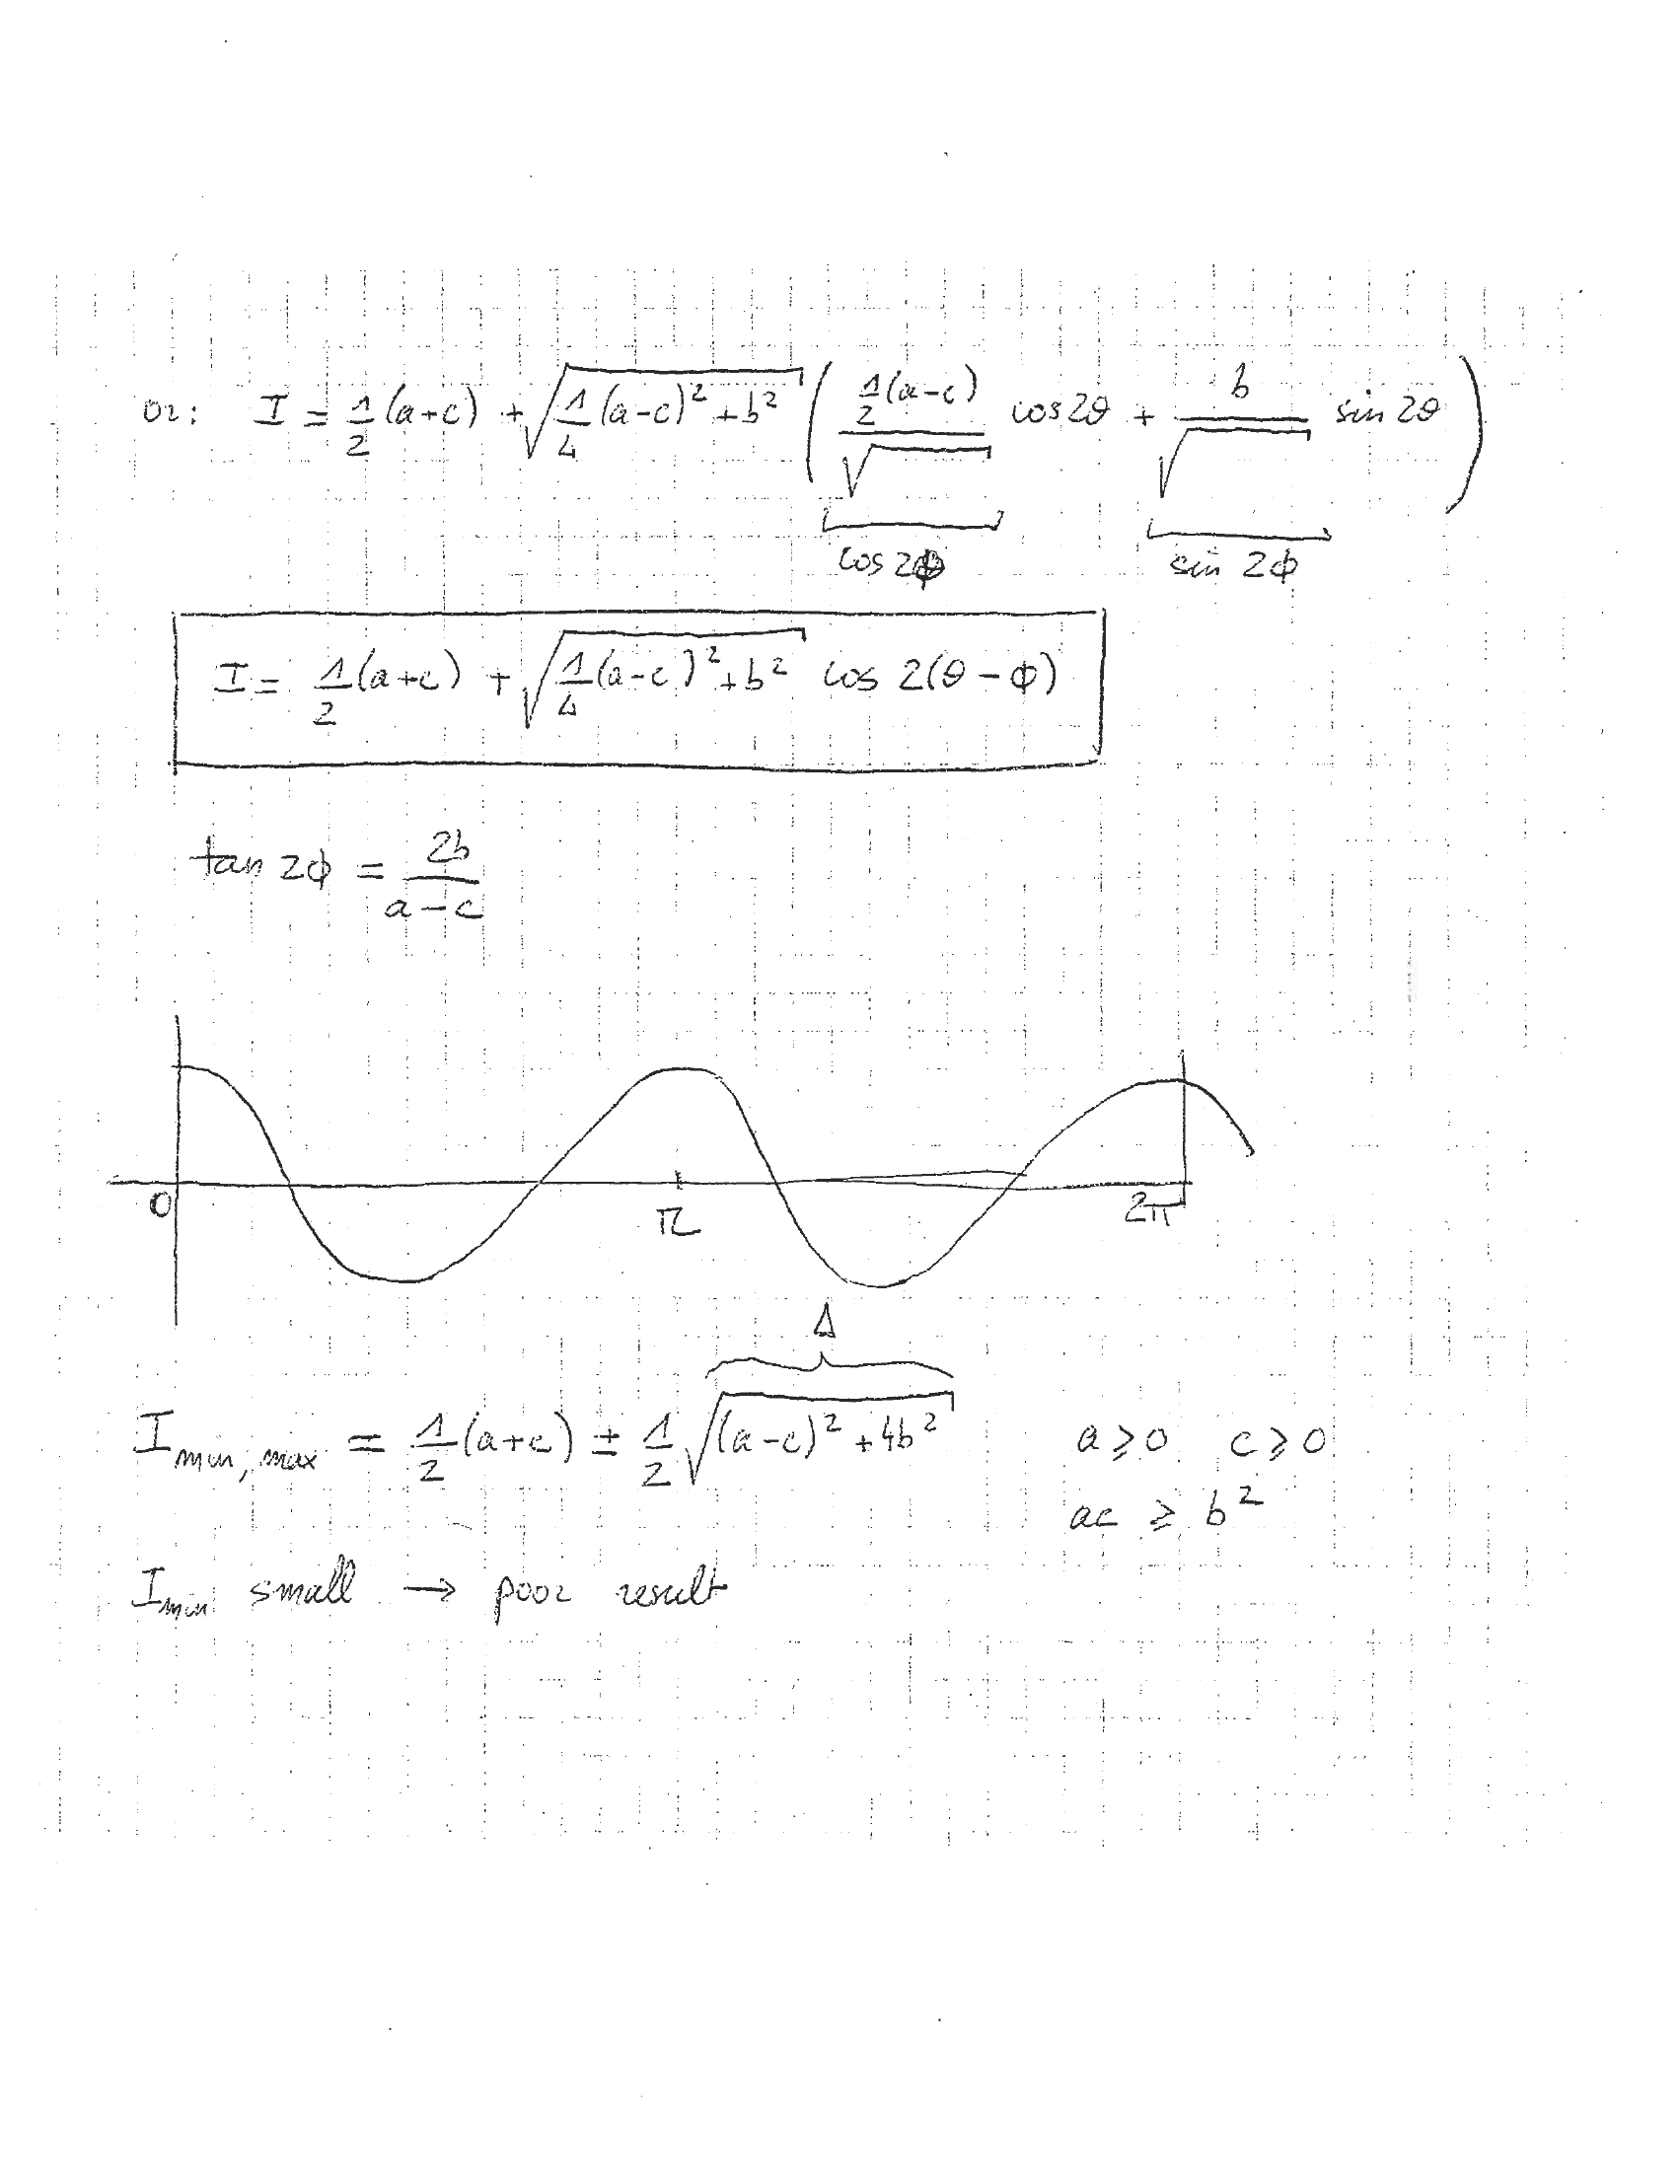 or: I = 1/2 (a+c) + √(1/4 (a-c)² + b²) ( 1/2 (a-c) / √ cos 2θ + b / √ sin 2θ )
cos 2ϕ sin 2ϕ
I = 1/2 (a+c) + √(1/4 (a-c)² + b²) cos 2(θ - ϕ)
tan 2ϕ = 2b / a-c
0 π 2π
Δ
I min, max = 1/2 (a+c) ± 1/2 √((a-c)² + 4b²) a ⩾ 0 c ⩾ 0
ac ⩾ b²
I min small → poor result